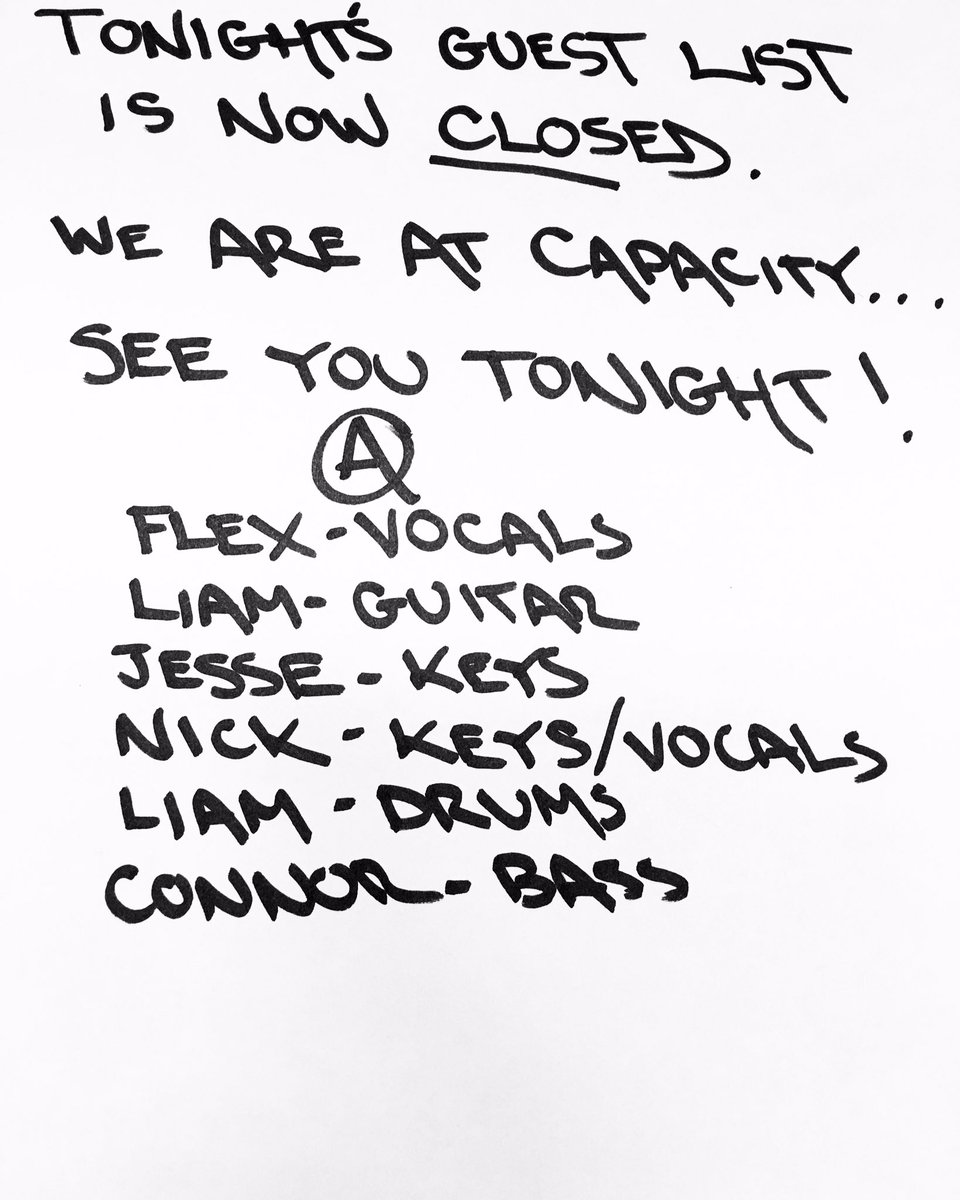 TONIGHT'S GUEST LIST
IS NOW CLOSED.
WE ARE AT CAPACITY...
SEE YOU TONIGHT!
A
FLEX-VOCALS
LIAM-GUITAR
JESSE-KEYS
NICK-KEYS/VOCALS
LIAM-DRUMS
CONNOR-BASS